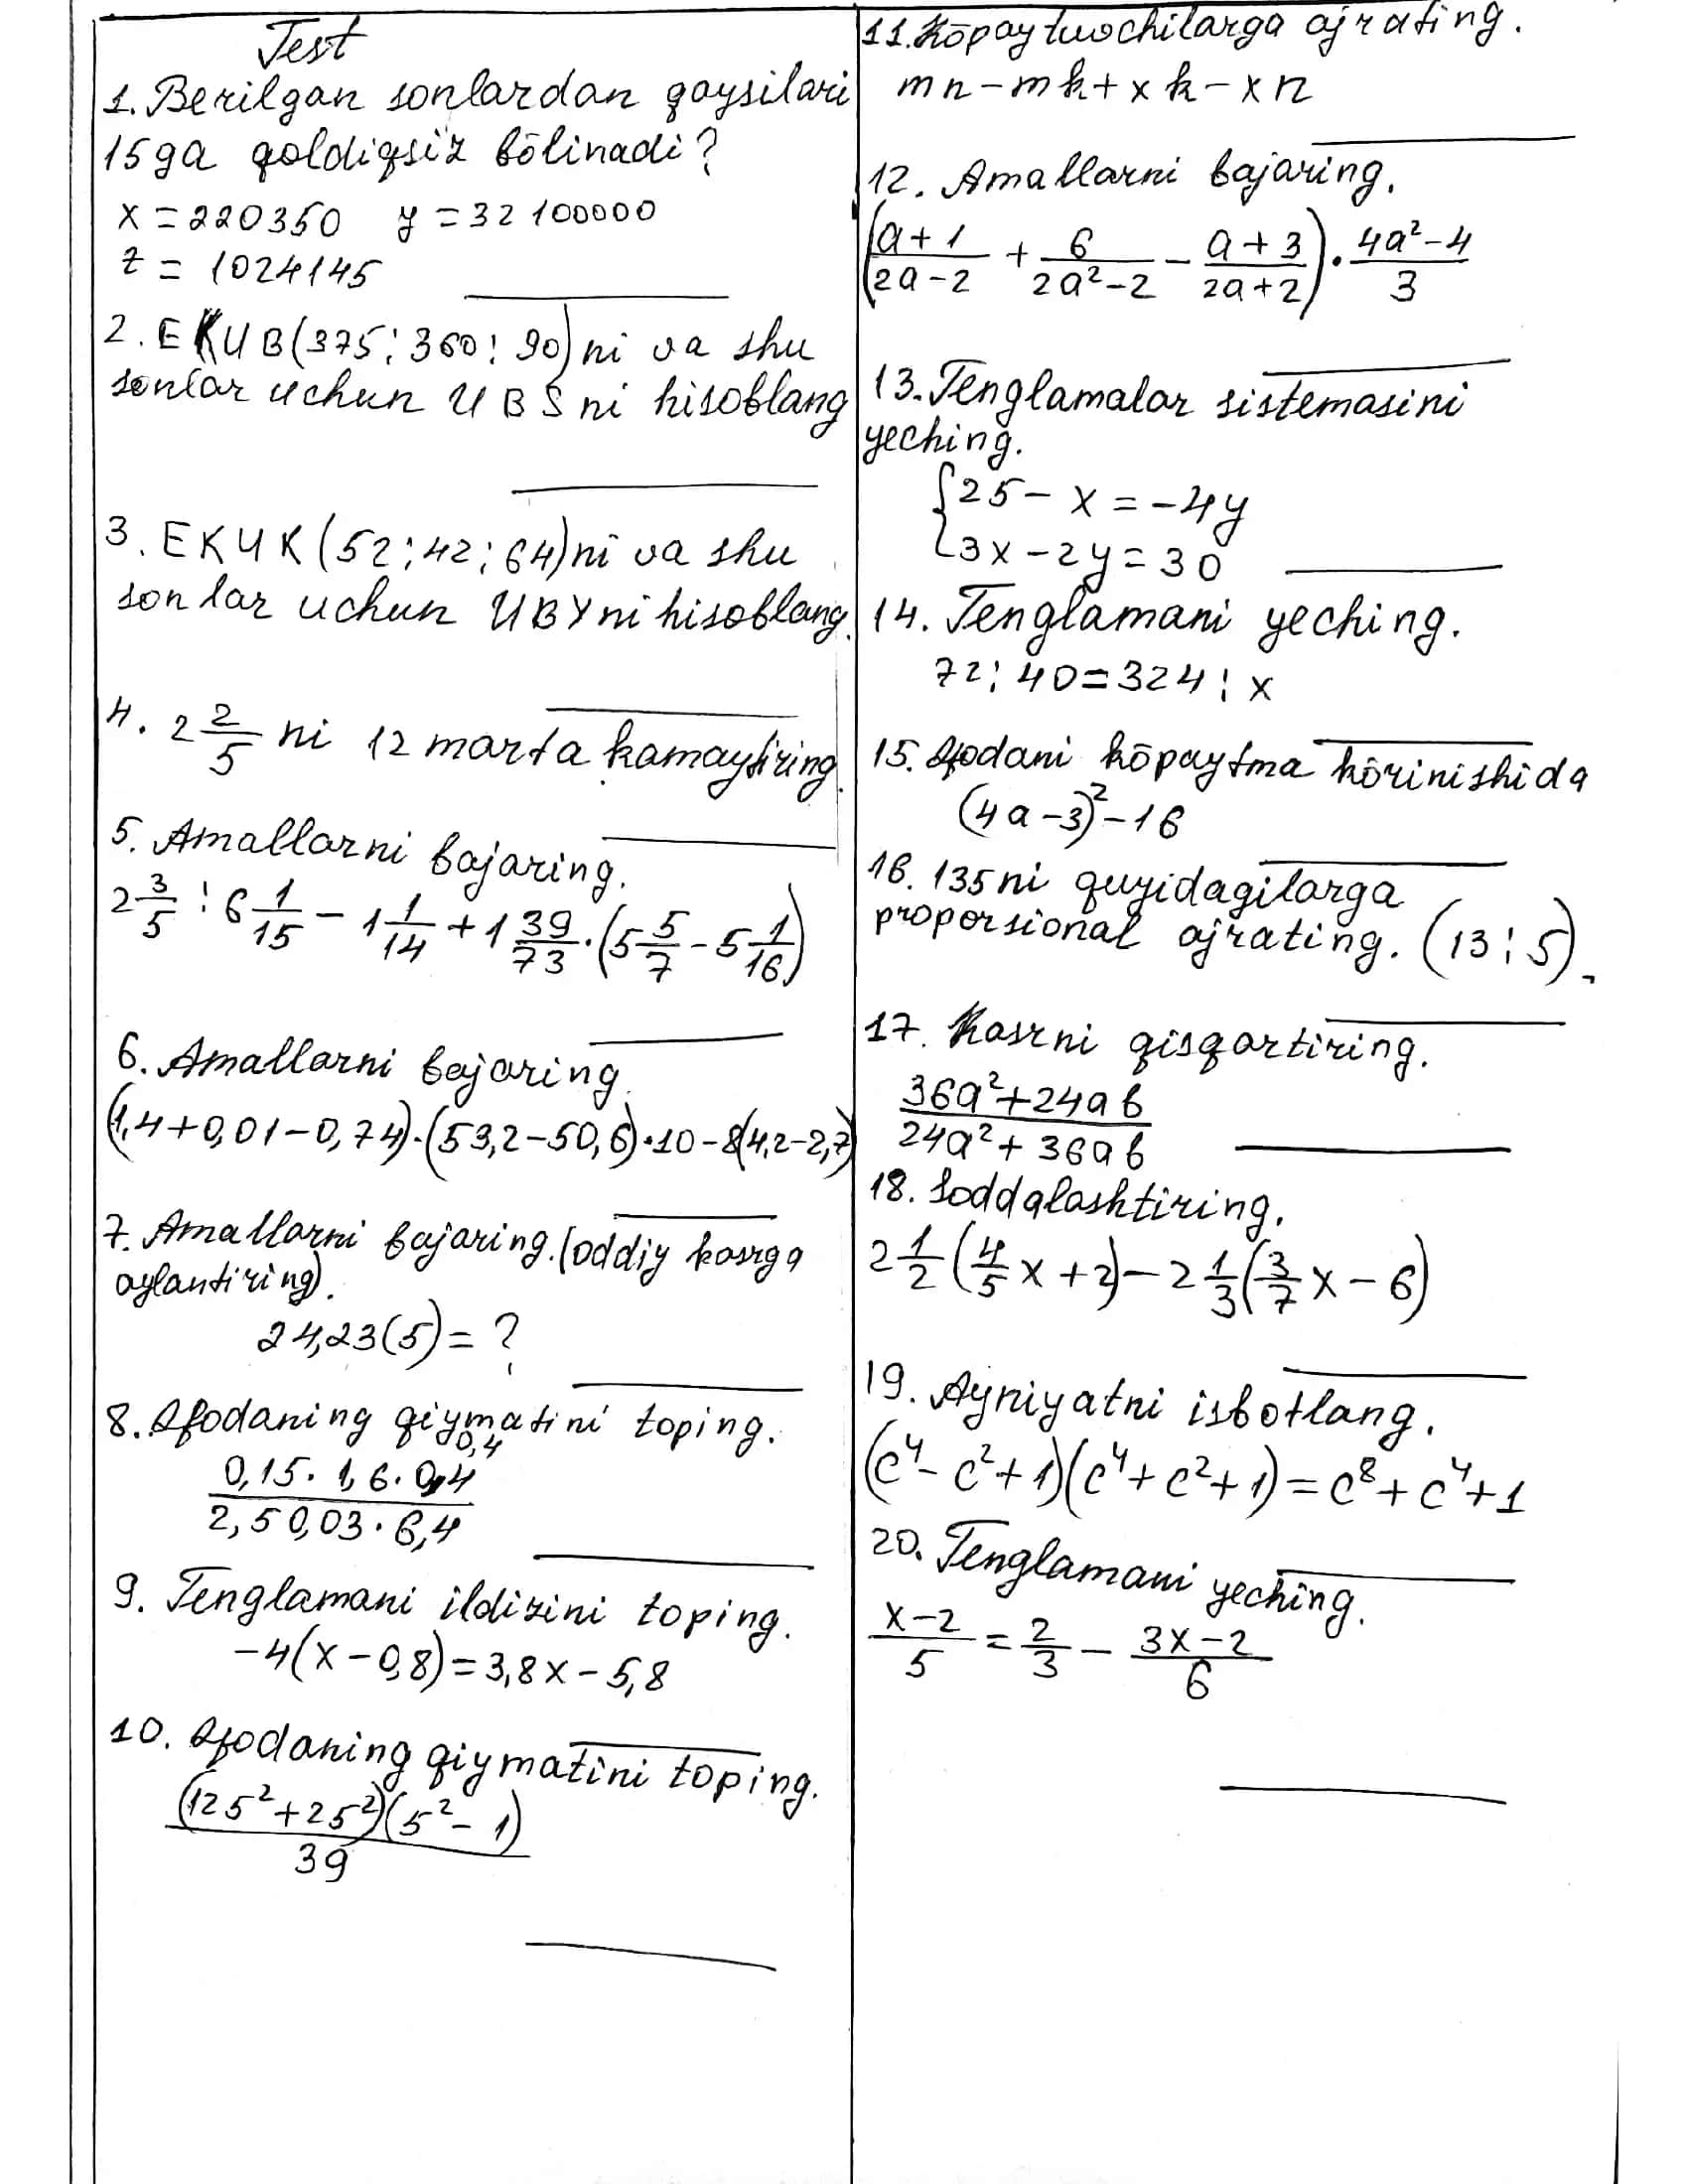 Test
1. Berilgan sonlardan qaysilari
15ga qoldiqsiz bōlinadi?
x = 220350 y = 32100000
z = 1024145
2. EKUB(375; 360; 90)ni va shu
sonlar uchun UBSni hisoblang
3. EKUK(52; 42; 64)ni va shu
sonlar uchun UBYni hisoblang.
4. 2 2/5 ni 12 marta kamaytiring.
5. Amallarni bajaring.
2 3/5 : 6 1/15 - 1 1/14 + 1 39/73 · (5 5/7 - 5 1/16)
6. Amallarni bajaring.
(1,4+0,01-0,74)·(53,2-50,6)·10-8(4,2-2,7)
7. Amallarni bajaring. (oddiy kasrga
aylantiring).
24,23(5) = ?
8. Ifodaning qiymatini toping.
0,4
0,15 · 1,6 · 0,4
2,5 0,03 · 6,4
9. Tenglamani ildizini toping.
-4(x-0,8) = 3,8x - 5,8
10. Ifodaning qiymatini toping.
(125²+25²)(5²-1)
39
11. Kōpaytuvchilarga ajrating.
mn - mk + xk - xn
12. Amallarni bajaring.
((a+1)/(2a-2) + 6/(2a²-2) - (a+3)/(2a+2)) · (4a²-4)/3
13. Tenglamalar sistemasini
yeching.
{25 - x = -4y
3x - 2y = 30
14. Tenglamani yeching.
72 : 40 = 324 : x
15. Ifodani kōpaytma kōrinishida
(4a-3)² - 16
16. 135ni quyidagilarga
proporsional ajrating. (13 : 5).
17. Kasrni qisqartiring.
36a²+24ab
24a²+36ab
18. Soddalashtiring.
2 1/2 (4/5 x + 2) - 2 1/3 (3/7 x - 6)
19. Ayniyatni isbotlang.
(c⁴ - c² + 1)(c⁴ + c² + 1) = c⁸ + c⁴ + 1
20. Tenglamani yeching.
(x-2)/5 = 2/3 - (3x-2)/6